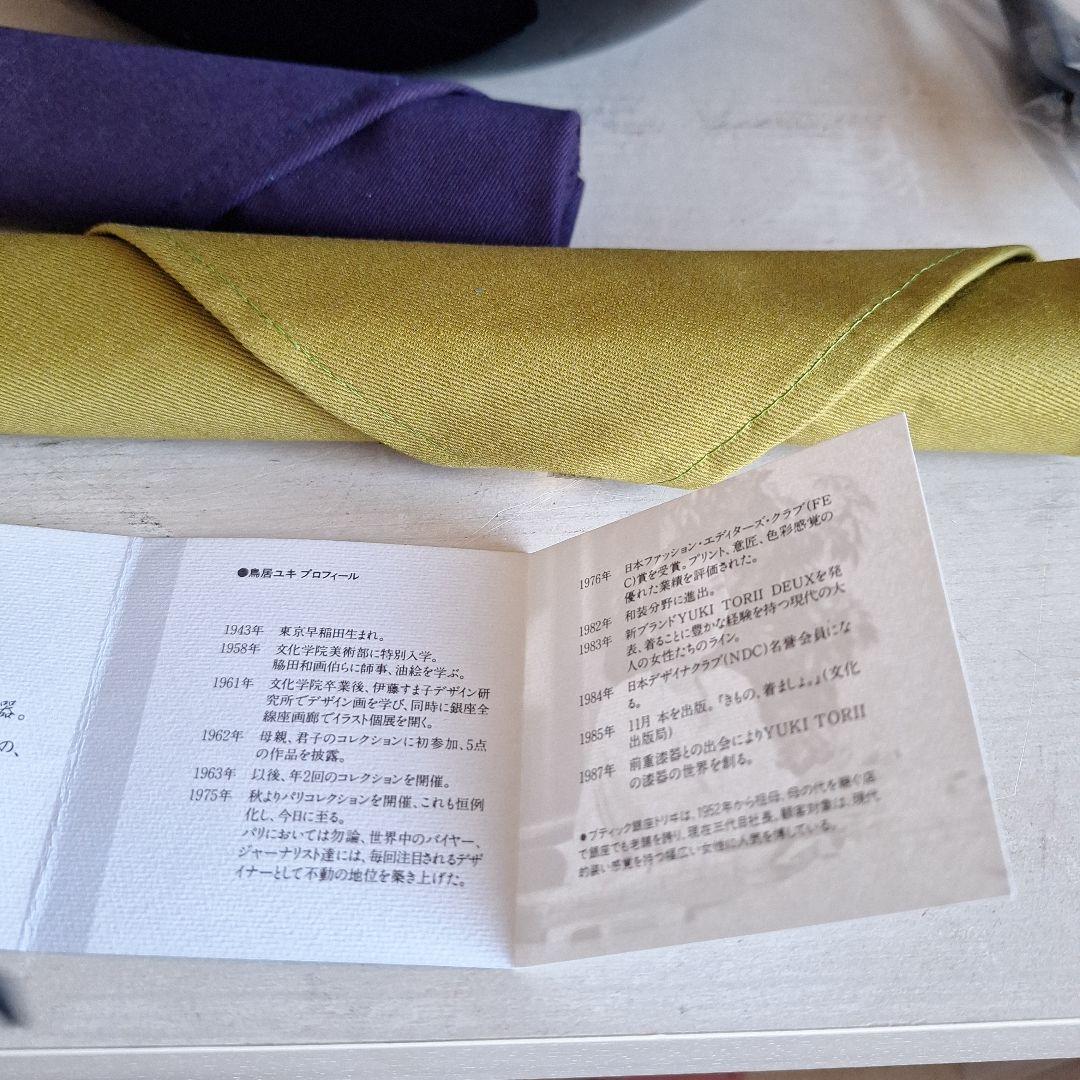 器。
の、
●鳥居ユキ プロフィール
1943年 東京早稲田生まれ。
1958年 文化学院美術部に特別入学。
脇田和画伯らに師事、油絵を学ぶ。
1961年 文化学院卒業後、伊藤すま子デザイン研
究所でデザイン画を学び、同時に銀座全
線座画廊でイラスト個展を開く。
1962年 母親、君子のコレクションに初参加、5点
の作品を披露。
1963年 以後、年2回のコレクションを開催。
1975年 秋よりパリコレクションを開催、これも恒例
化し、今日に至る。
パリにおいては勿論、世界中のバイヤー、
ジャーナリスト達には、毎回注目されるデザ
イナーとして不動の地位を築き上げた。
1976年 日本ファッション・エディターズ・クラブ(FE
C)賞を受賞。プリント、意匠、色彩感覚の
優れた業績を評価された。
1982年 和装分野に進出。
1983年 新ブランドYUKI TORII DEUXを発
表、着ることに豊かな経験を持つ現代の大
人の女性たちのライン。
1984年 日本デザイナクラブ(NDC)名誉会員にな
る。
1985年 11月 本を出版。「きもの,着ましょ。」(文化
出版局)
1987年 前重漆器との出会によりYUKI TORII
の漆器の世界を創る。
●ブティック銀座トリヰは、1952年から祖母、母の代を継ぐ店
で銀座でも老舗を誇り、現在三代目社長。顧客対象は、現代
的装い感覚を持つ幅広い女性に人気を博している。